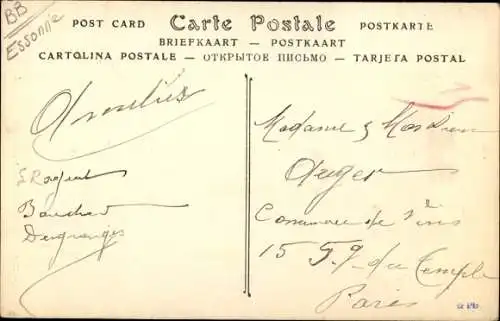 BB
Essonne
POST CARD Carte Postale POSTKARTE
BRIEFKAART — POSTKAART
CARTOLINA POSTALE — ОТКРЫТОЕ ПИСЬМО — TARJETA POSTAL
Amitiés
Bouchard
Desgranges
Madame & Monsieur
Auger
15 Fg du Temple
Paris